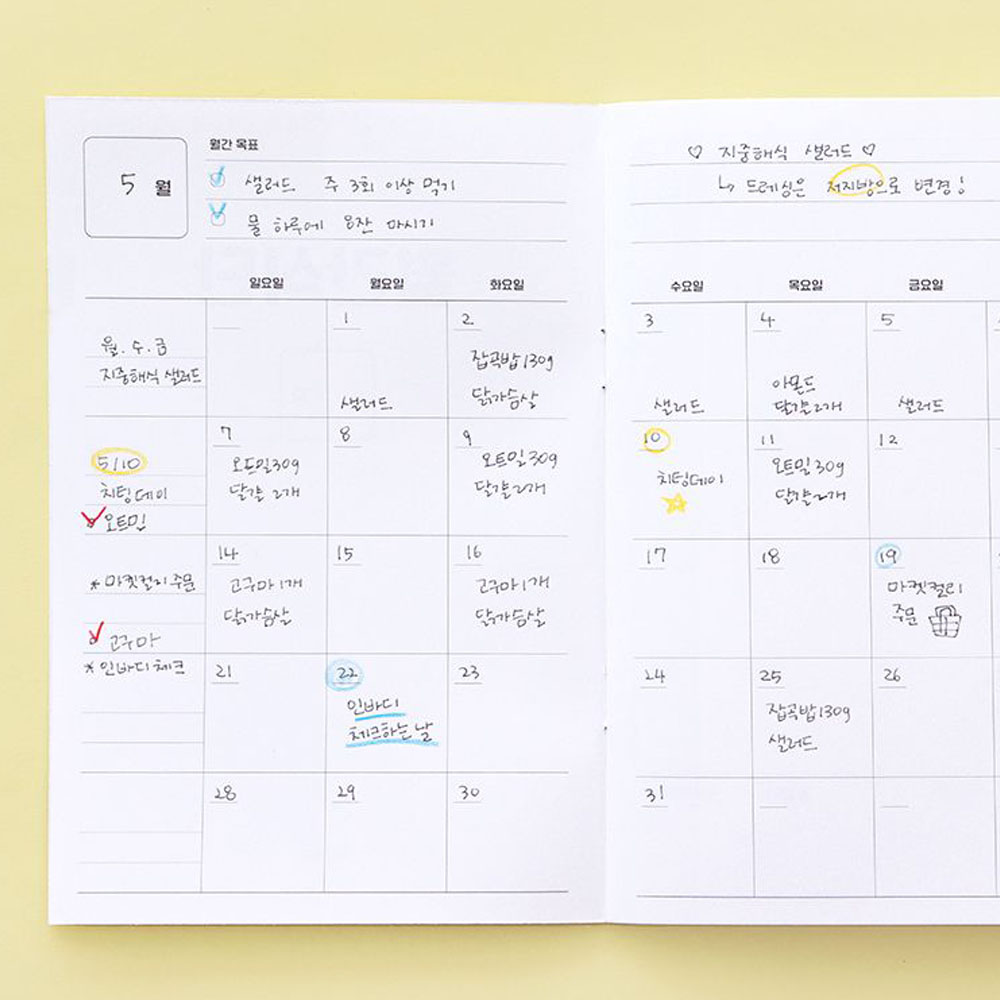 월간 목표
5 월
샐러드 주 3회 이상 먹기
물 하루에 8잔 마시기
♡ 지중해식 샐러드 ♡
↳ 드레싱은 저지방으로 변경!
일요일 월요일 화요일 수요일 목요일 금요일
월.수.금
지중해식 샐러드
1
샐러드
2
잡곡밥 130g
닭가슴살
3
샐러드
4
아몬드
달걀 2개
5
샐러드
5/10
치팅데이
오트밀
7
오트밀 30g
달걀 2개
8
9
오트밀 30g
달걀 2개
10
치팅데이
11
오트밀 30g
달걀 2개
12
* 마켓컬리 주문
고구마
14
고구마 1개
닭가슴살
15
16
고구마 1개
닭가슴살
17
18
19
마켓컬리
주문
* 인바디 체크
21
22
인바디
체크하는 날
23
24
25
잡곡밥 130g
샐러드
26
28
29
30
31